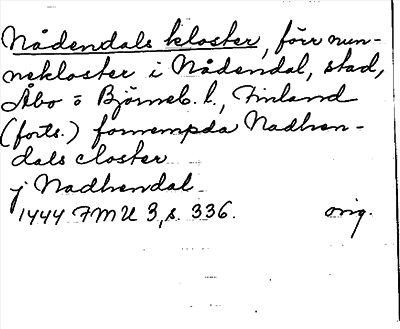 Nådendals kloster, förr nun-
nekloster i Nådendal, stad,
Åbo o Björneb. l., Finland
(forts.) fornempda Nadhen-
dals closter
j Nadhendal
1444 FMU 3, s. 336. orig.